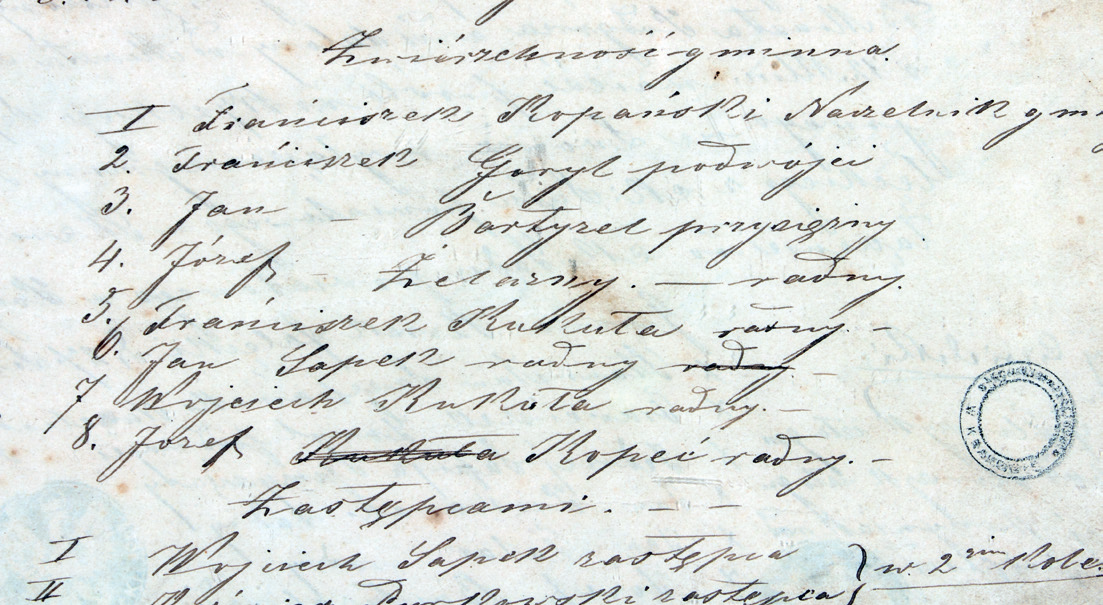 Zwiérzchność gminna.
I Franciszek Kopański Naczelnik gmi
2. Franciszek Goryl podwójci
3. Jan - Bartyzel przysiężny
4. Józef - Zelazny. — radny.
5. Franciszek Kukuła radny. -
6. Jan Sapek radny radny -
7 Wojciech Kukuła radny. -
8. Józef Kukuła Kopeć radny. -
Zastępcami. - -
I Wojciech Sapek zastępca
II zastępca } w. 2gim Kole